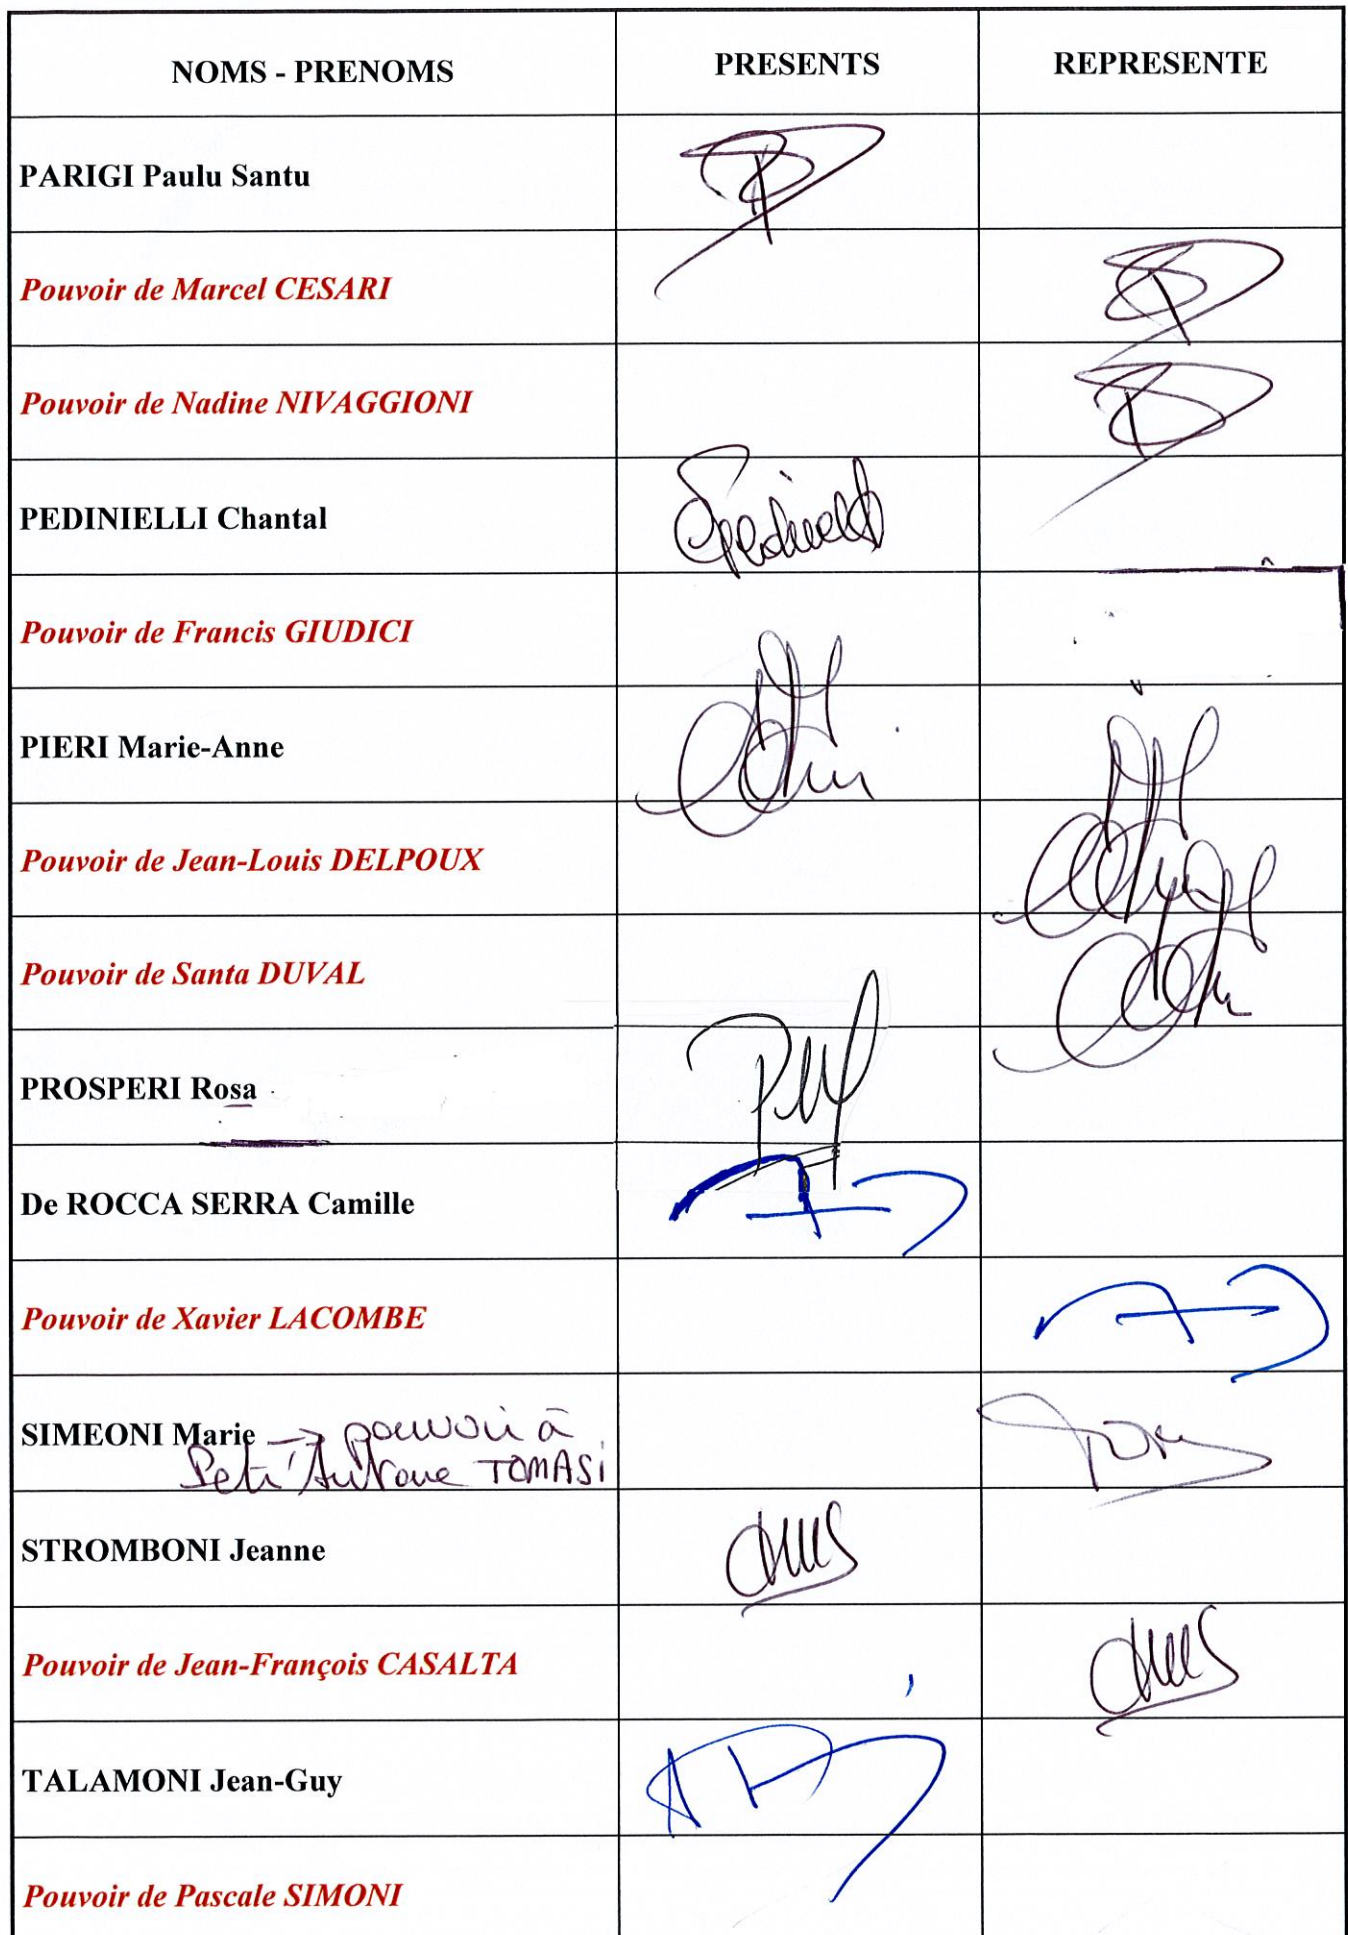 NOMS - PRENOMS PRESENTS REPRESENTE
PARIGI Paulu Santu
Pouvoir de Marcel CESARI
Pouvoir de Nadine NIVAGGIONI
PEDINIELLI Chantal
Pouvoir de Francis GIUDICI
PIERI Marie-Anne
Pouvoir de Jean-Louis DELPOUX
Pouvoir de Santa DUVAL
PROSPERI Rosa
De ROCCA SERRA Camille
Pouvoir de Xavier LACOMBE
SIMEONI Marie → pouvoir à
Petr'Antone TOMASi
STROMBONI Jeanne
Pouvoir de Jean-François CASALTA
TALAMONI Jean-Guy
Pouvoir de Pascale SIMONI